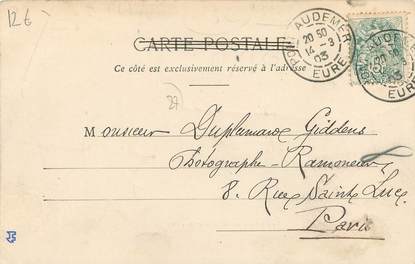 12€
CARTE POSTALE
Ce côté est exclusivement réservé à l'adresse
PONT AUDEMER
20 50
14 - 3
03
EURE
27
Monsieur Duplumarox Giddens
Photographe - Ramoneur
8. Rue Sainte Luce
Paris